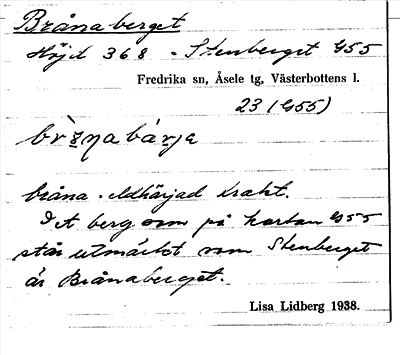 Bråna berget
Höjd 368 - Stenberget G55
Fredrika sn, Åsele tg, Västerbottens l.
23 (G55)
bråna - eldhärjad trakt.
Det berg som på kartan G55
står utmärkt som Stenberget
är Brånaberget.
Lisa Lidberg 1938.